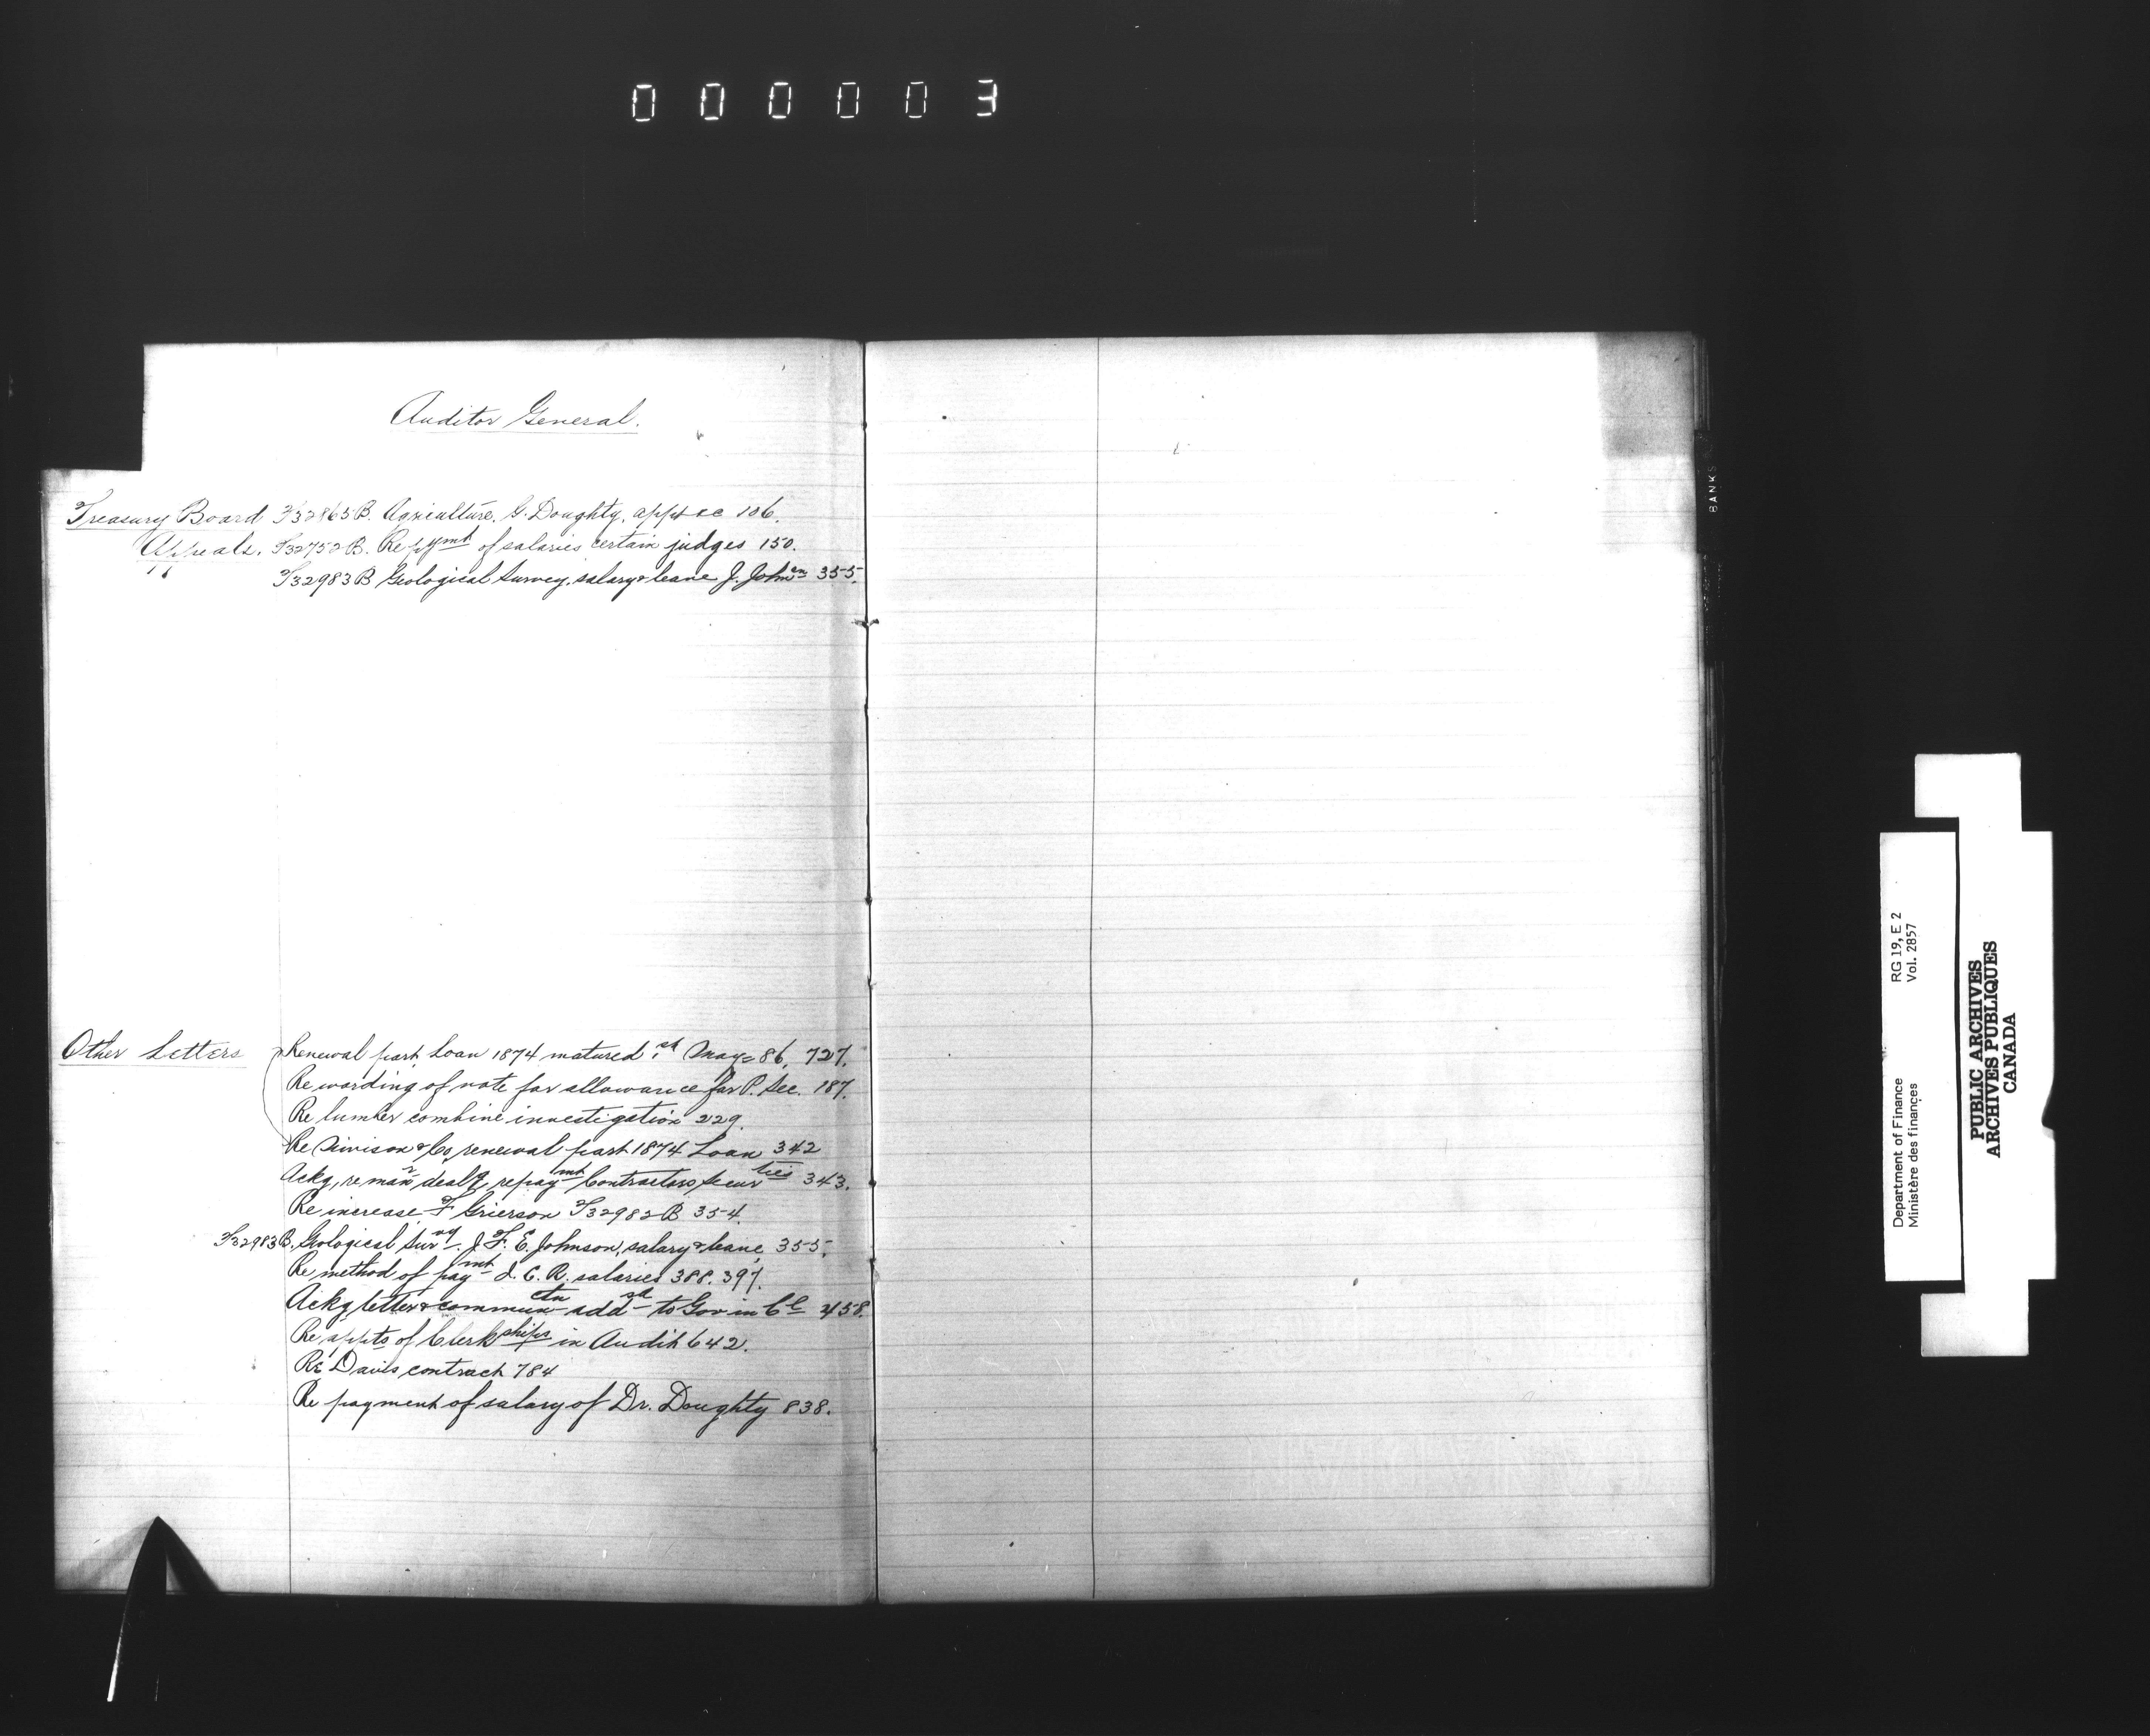 000003
Auditor General.
Treasury Board T32865B. Agriculture. G. Doughty, appt &c 106.
Appeals. T32752B. Re pymt of salaries certain judges 150.
T32983B Geological Survey, salary & leave J. Johnsn 355.
Other Letters
Renewal part Loan 1874 matured 1st May 86, 727.
Re wording of vote for allowance for P. Sec. 187.
Re lumber combine investigation 229.
Re & Co renewal part 1874 Loan 342
Ackg, re mannr dealg repaymt Contractors Securties 343.
Re increase F Grierson T32982B 354.
T32983B. Geological Survy. J. F. E. Johnson, salary & leave, 355.
Re method of paymt I. C. R. salaries 388. 397.
Ackg letter & communctn addsd to Gov in Cl 458.
Re appts of Clerkships in Audit 642.
Re Davis contract 784
Re payment of salary of Dr. Doughty 838.
BANKS
Department of Finance RG 19, E 2
Ministère des finances Vol. 2857
PUBLIC ARCHIVES
ARCHIVES PUBLIQUES
CANADA